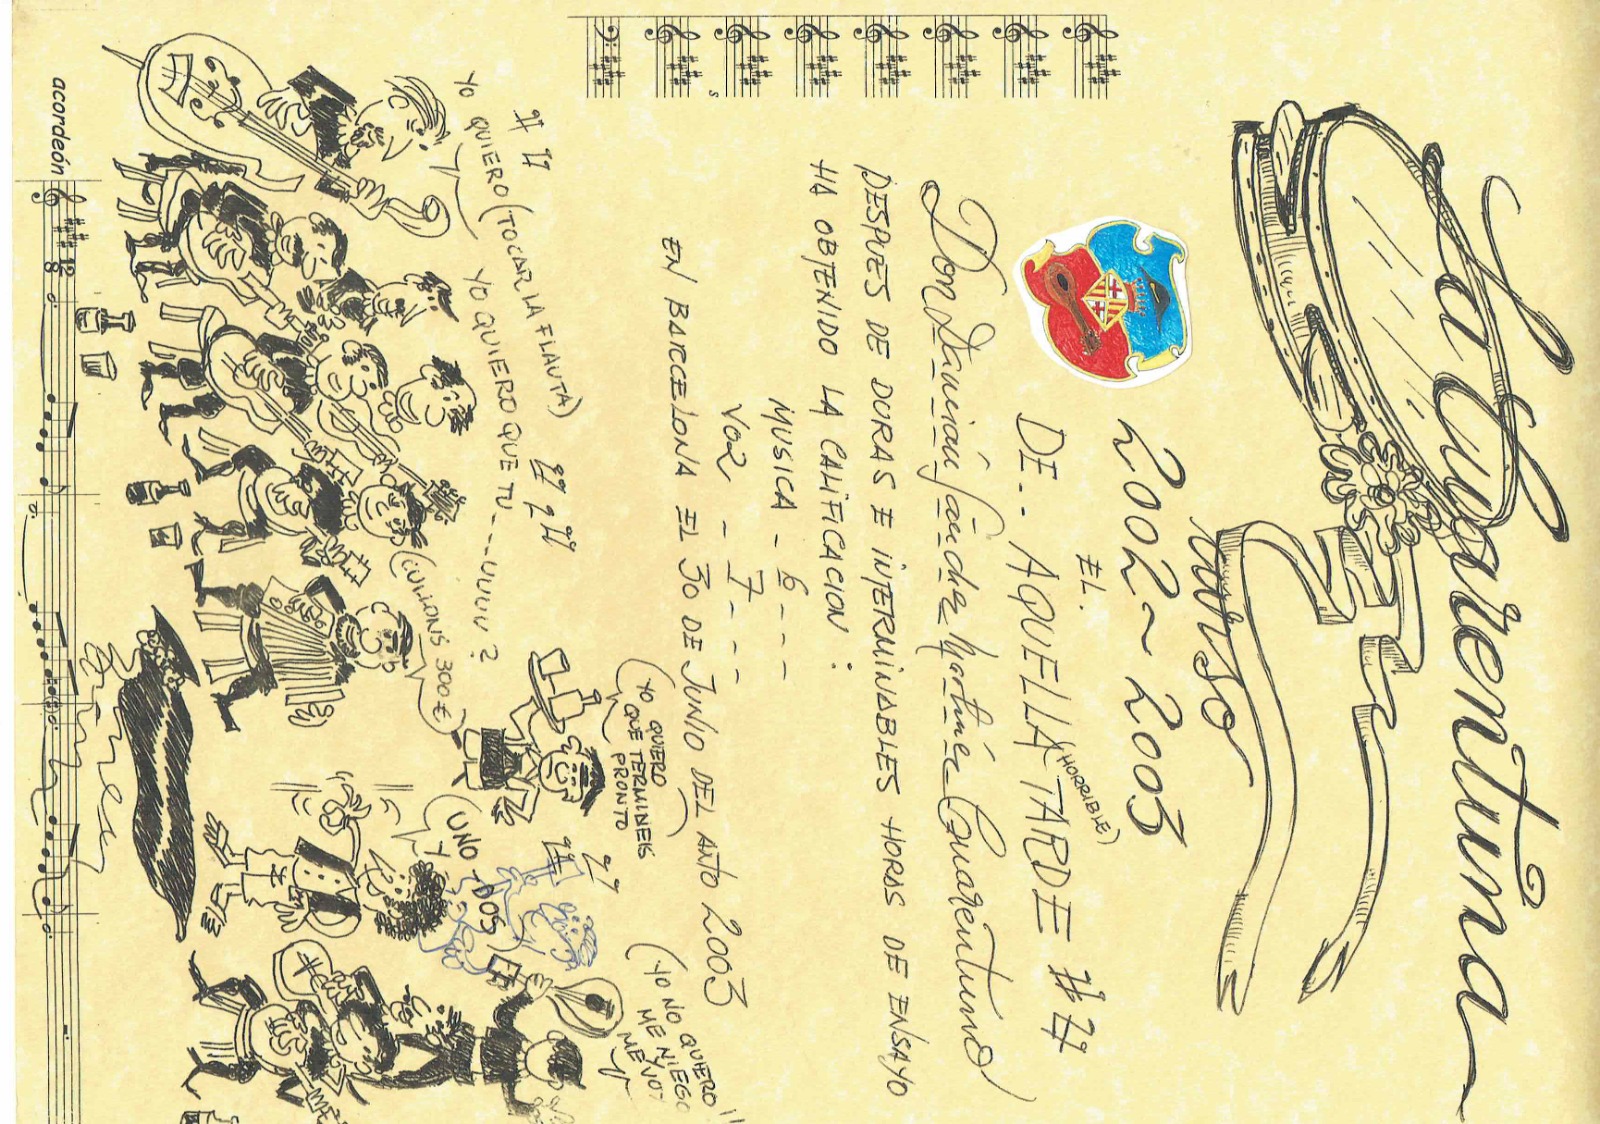 La Cuarentuna
Curso
2002 ~ 2003
EL.
DE.. AQUELLA TARDE
(HORRIBLE)
Don Damián Sánchez Martínez (Cuarentuno)
DESPUES DE DURAS E INTERMINABLES HORAS DE ENSAYO
HA OBTENIDO LA CALIFICACION :
MUSICA - 6 - - -
VOZ - 7 - - -
EN BARCELONA EL 30 DE JUNIO DEL AÑO 2003
YO QUIERO (TOCAR LA FLAUTA)
YO QUIERO QUE TU - - - UUUU ?
(CULLONS 300 €
(YO QUIERO
QUE TERMINEIS
PRONTO
(UNO - DOS)
Y
(YO NO QUIERO !!
ME NIEGO
ME VOY
acordeón
12
8